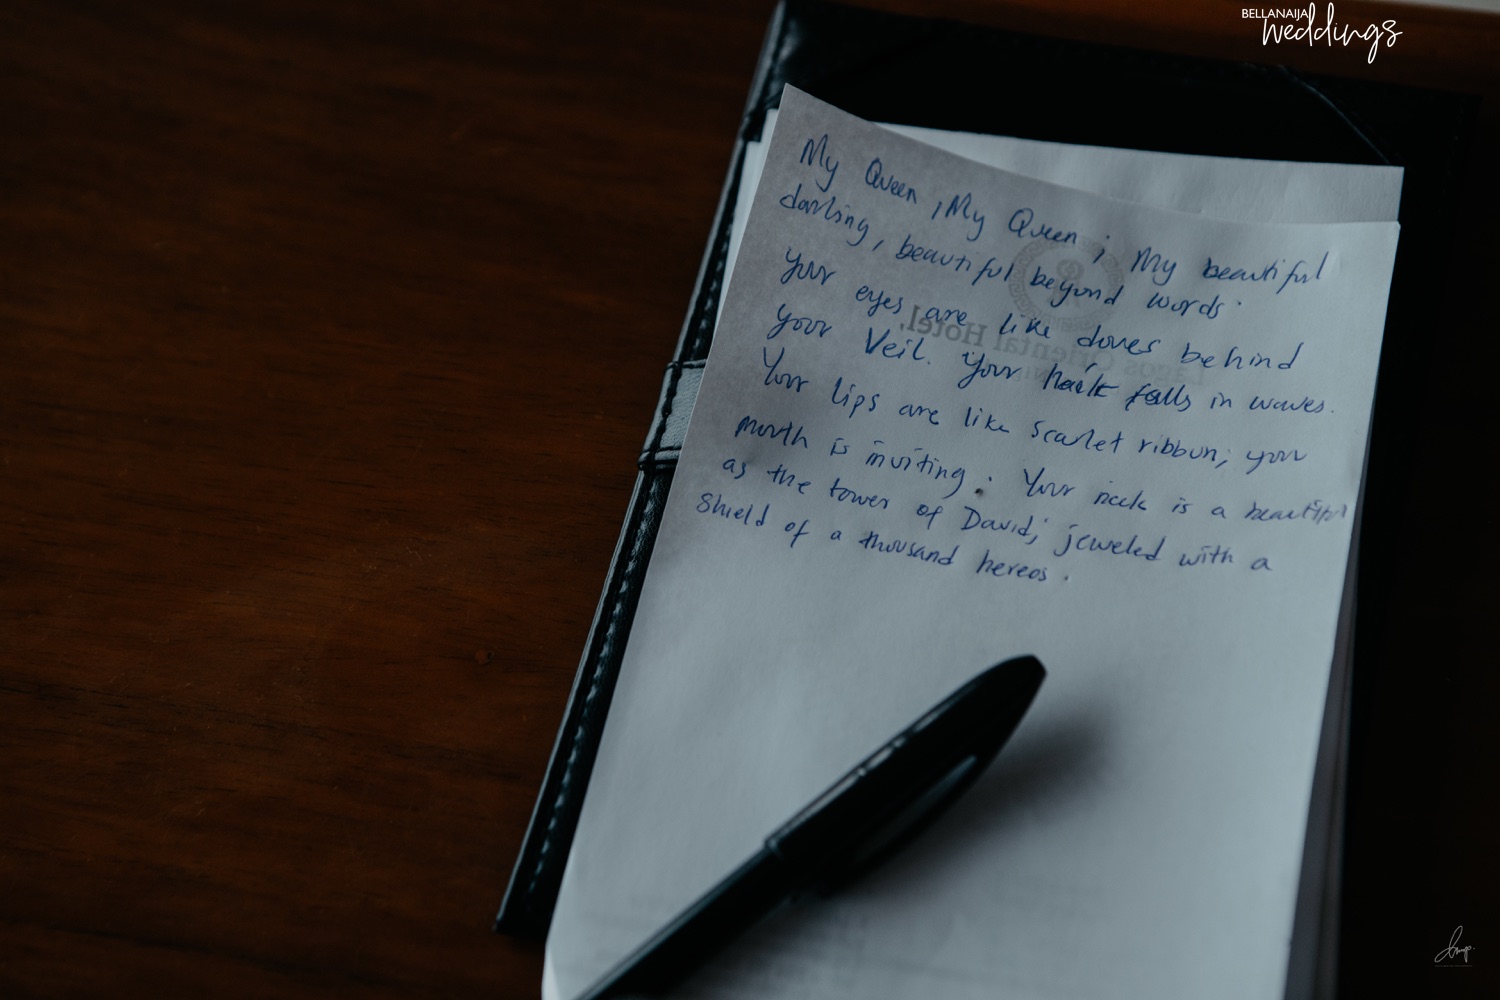 BELLANAIJA
weddings
My Queen, My Queen; My beautiful
darling, beautiful beyond words.
Your eyes are like doves behind
your Veil. Your falls in waves.
Your lips are like scarlet ribbon; your
mouth is inviting. Your neck is a beautiful
as the tower of David; jeweled with a
Shield of a thousand hereos.
Lagos Oriental Hotel,